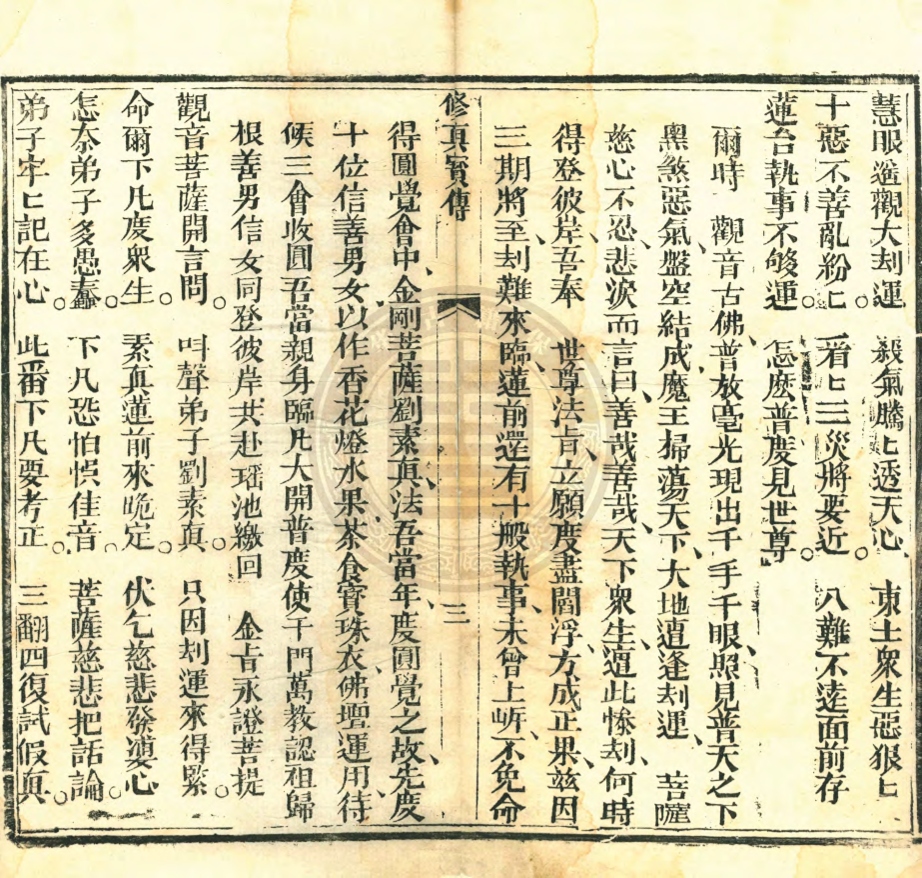 慧眼遙觀大刦運。 殺氣騰匕透天心。 東土衆生惡狠匕
十惡不善亂紛匕 一看匕三災將要近。 八難不遠面前存
蓮台執事不够運。 怎麽普度見世尊。
爾時 觀音古佛、普放毫光現出千手千眼照見普天之下
黑煞惡氣、盤空結成魔王掃蕩天下、大地遭逢刦運、 菩薩
慈心不忍、悲淚而言曰、善哉善哉、天下衆生、遭此慘刦、何時
得登彼岸、吾奉 世尊法旨、立願度盡閻浮、方成正果、兹因
三期將至、刦難來臨、蓮前還有十般執事、未曾上岍、不免命
修真寶傳 三
得圓覺會中、金剛菩薩劉素真、法吾當年、度圓覺之故、先度
十位信善男女、以作香花燈水果茶食寶珠衣、佛壇運用、待
候三會收圓、吾當親身臨凡、大開普度、使千門萬教、認祖歸
根、善男信女、同登彼岸、共赴瑶池、繳回 金旨、永證菩提
觀音菩薩開言問。 呌聲弟子劉素真。 只因刦運來得緊。
命爾下凡度衆生。 素真蓮前來跪定。 伏乞慈悲發婆心
怎奈弟子多愚蠢。 下凡恐怕悞佳音。 菩薩慈悲把話論。
弟子牢匕記在心。 此番下凡要考正。 三翻四復試假真